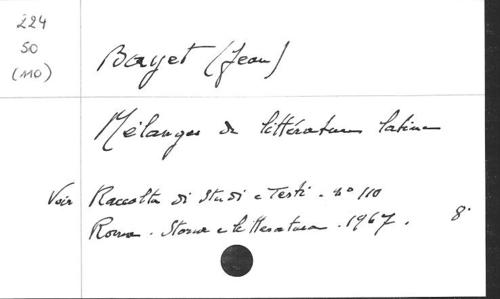 224
SO
(110)
Bayet (Jean)
Mélanges de littérature latine
Voir Raccolta di Studi e Testi . n° 110
Roma . Storia e letteratura . 1967 . 8°